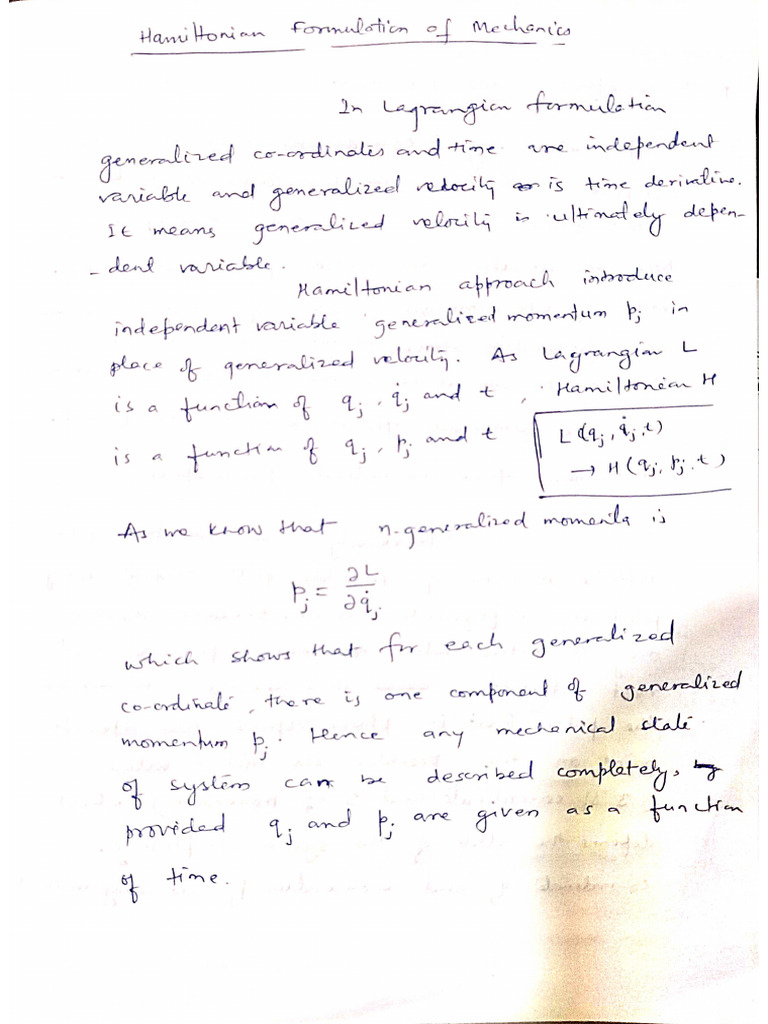 Hamiltonian Formulation of Mechanics
In Lagrangian formulation
generalized co-ordinates and time are independent
variable and generalized velocity is time derivative.
It means generalized velocity is ultimately depen-
-dent variable.
Hamiltonian approach introduce
independent variable generalized momentum pj in
place of generalized velocity. As Lagrangian L
is a function of qj, q̇j and t, Hamiltonian H
is a function of qj, pj and t
L(qj, q̇j, t)
→ H(qj, pj, t)
As we know that n-generalized momenta is
pj = ∂L/∂q̇j
which shows that for each generalized
co-ordinate, there is one component of generalized
momentum pj. Hence any mechanical state
of system can be described completely,
provided qj and pj are given as a function
of time.